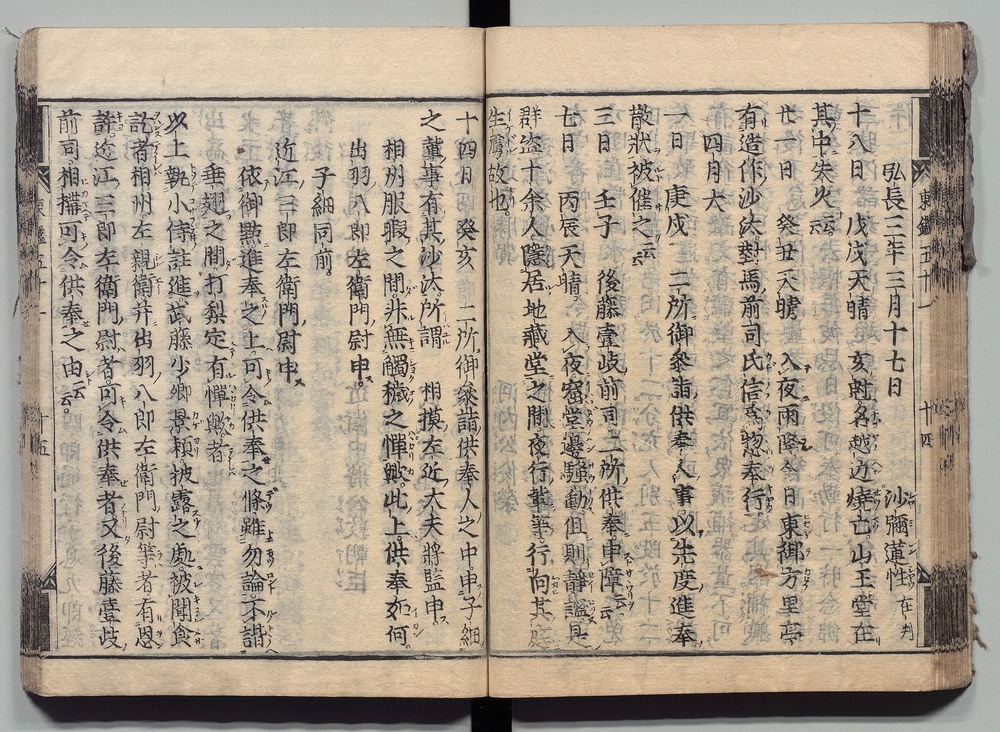 弘長三年三月十七日
沙彌蓮性 在判
十八日 戊戌天晴 亥尅名越近燒亡山王堂在
其中失火云云
廿一日 癸丑天晴 入夜雨降今日東御方里亭
有造作沙汰對馬前司氏信爲惣奉行
四月大
一日 庚戌 二所御參詣供奉人事以先度進奉
散狀被催之云云
三日 壬子 後藤壹岐前司二所供奉申障云云
七日 丙辰天晴 入夜窟堂邊騷動但則靜謐是
群盜十余人隱居地藏堂之間夜行輩等行向其
生虜故也
十四日 癸亥 二所御參詣供奉人之中申子細
之輩事有其沙汰所謂 相摸左近大夫將監申
相州服暇之間非無觸穢之憚歟此上供奉如何
出羽八郎左衞門尉申
子細同前
近江三郎左衞門尉申
依御點進奉之上可令供奉之條雖勿論不諧
垂翅之間打梨定有憚歟者
以上執小侍註進武藤少卿景頼披露之處被聞食
訖者相州左親衞并出羽八郎左衞門尉等者有恩
許近江三郎左衞門尉者可令供奉者又後藤壹岐
前司相搆可令供奉之由云云
東鑑五十一
十四
十五